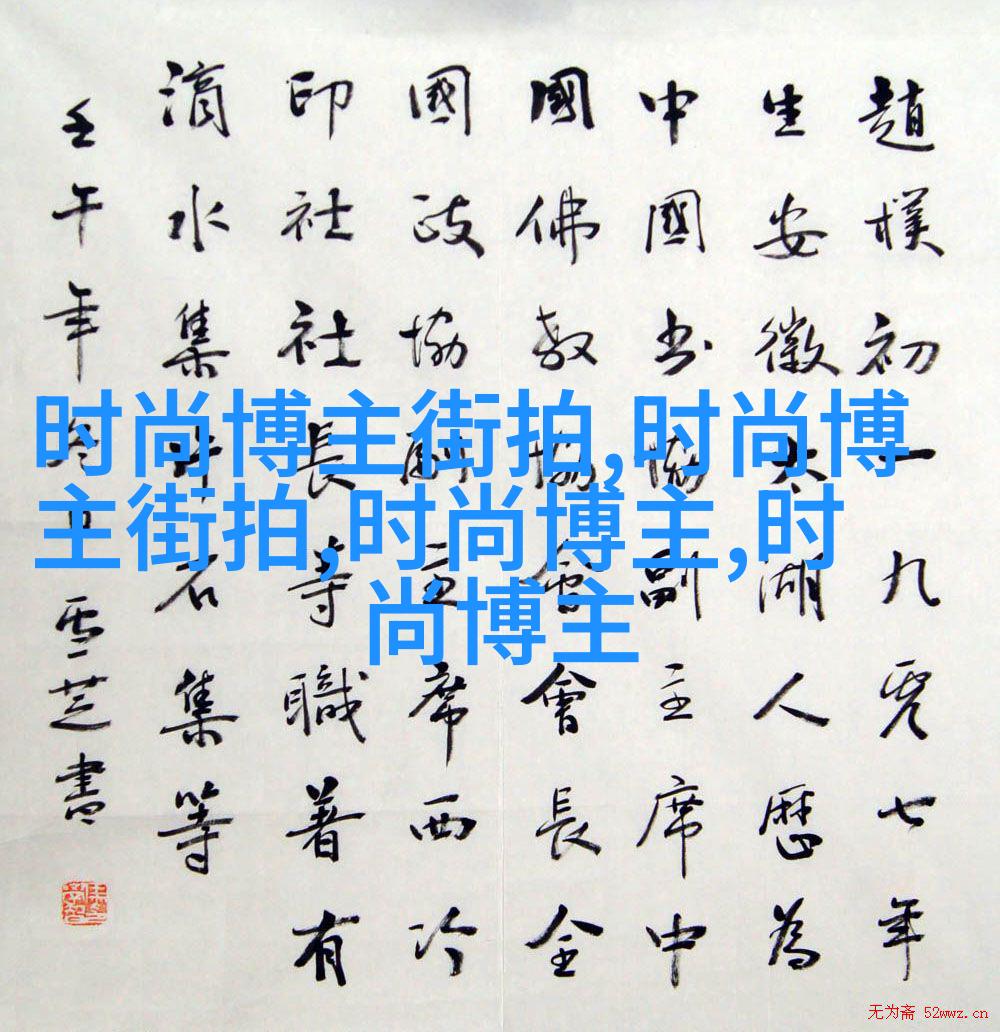 趙樸初一九零七年
生安徽太湖人歷為
中國書協副主席中
國佛教協會會長全
國政協副主席西冷
印社社長等職著有
滴水集片石集等
壬午年雪芝書
时尚博主街拍,时尚博
主街拍,时尚博主,时
尚博主
无为斋 52wwz.cn